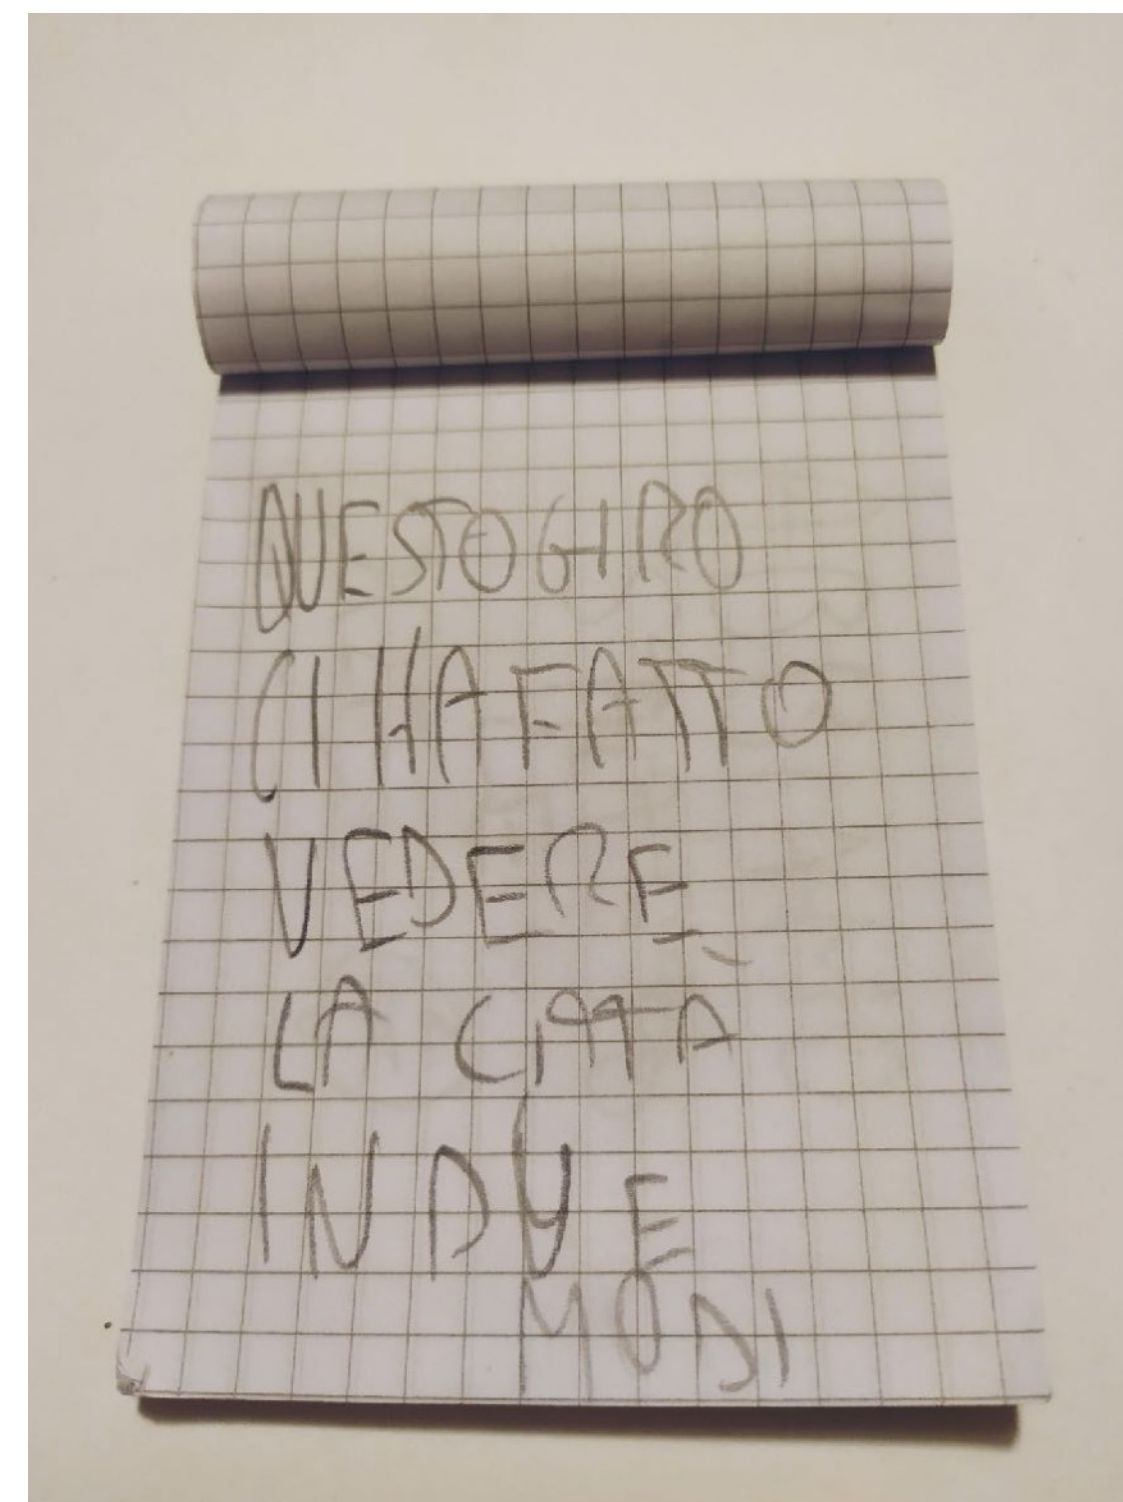 QUESTO GIRO
CI HA FATTO
VEDERE
LA CITTÀ
IN DUE
MODI